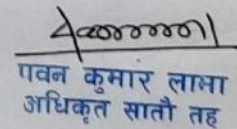 पवन कुमार लामा
अधिकृत सातौ तह